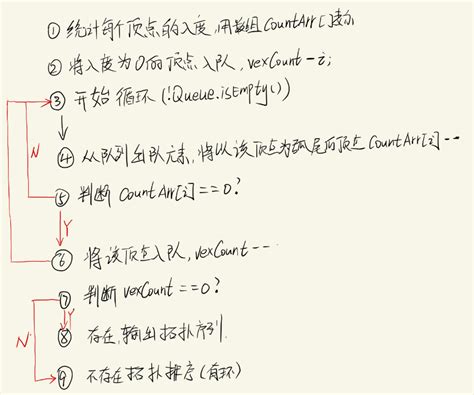 ① 统计每个顶点的入度,用数组CountArr[]表示
② 将入度为0的顶点入队,vexCount-i;
③ 开始循环(!Queue.isEmpty())
④ 从队列出队元素,将以该顶点为弧尾的顶点CountArr[i]--
N
⑤ 判断 CountArr[i]==0?
Y
⑥ 将该顶点入队,vexCount--
⑦ 判断 vexCount==0?
Y
N
⑧ 存在,输出拓扑序列.
⑨ 不存在拓扑排序(有环)